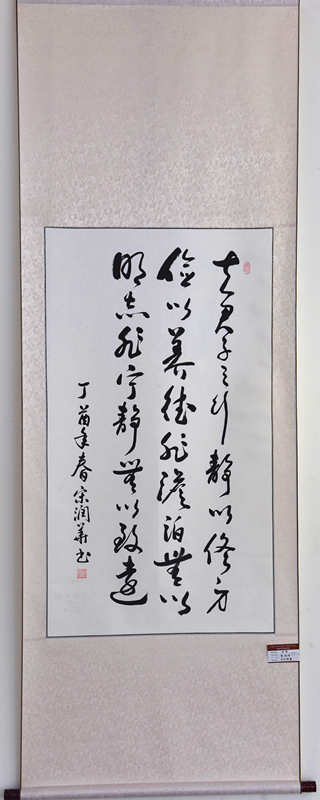 夫君子之行静以修身
俭以养德非澹泊無以
明志非宁静無以致遠
丁酉年春宋润華书